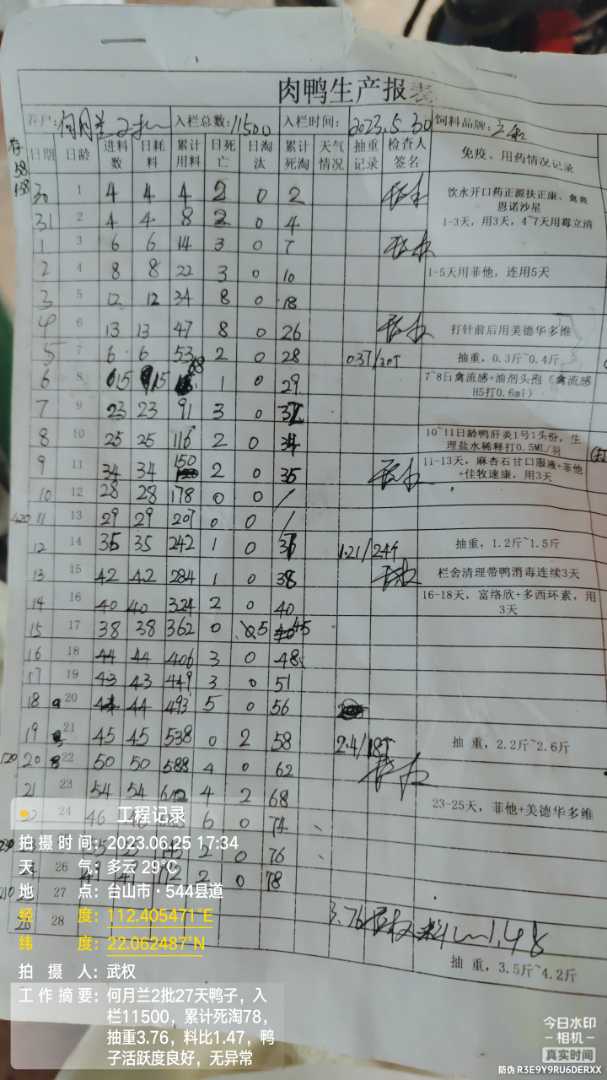 肉鸭生产报表
客户: 何月兰2批 入栏总数: 11500 入栏时间: 2023.5.30 饲料品牌:
日期 日龄 进料数 日耗料 累计用料 日死亡 日淘汰 累计死淘 天气情况 抽重记录 检查人签名 免疫、用药情况记录
30 1 4 4 4 2 0 2 饮水开口药正源扶正康、禽禽恩诺沙星
31 2 4 4 8 2 0 4 1-3天，用3天，4~7天用霉立清
1 3 6 6 14 3 0 7
2 4 8 8 22 3 0 10 1-5天用菲他，连用5天
3 5 12 12 34 8 0 18
4 6 13 13 47 8 0 26 打针前后用美德华多维
5 7 6 6 53 2 0 28 抽重，0.3斤~0.4斤，
6 8 15 15 68 1 0 29 7~8日禽流感+油剂头孢（禽流感H5打0.6ml）
7 9 23 23 91 3 0 32
8 10 25 25 116 2 0 34 10~11日龄鸭肝炎1号1头份，生理盐水稀释打0.5ML/羽
9 11 34 34 150 2 0 35 11-13天，麻杏石甘口服液+菲他+佳牧速康，用3天
10 12 28 28 178 0 0 /
11 13 29 29 207 0 0 /
12 14 35 35 242 1 0 37 1.21/24千 抽重，1.2斤~1.5斤
13 15 42 42 284 1 0 38 栏舍清理带鸭消毒连续3天
14 16 40 40 324 2 0 40 16-18天，富络欣+多西环素，用3天
15 17 38 38 362 0 5 45
16 18 44 44 406 3 0 48
17 19 43 43 449 3 0 51
18 20 44 44 493 5 0 56
19 21 45 45 538 0 2 58 2.4/18千 抽 重，2.2斤~2.6斤
20 22 50 50 588 4 0 62
21 23 54 54 642 4 2 68 23-25天，菲他+美德华多维
24 46 6 0 74
2 0 76
26 2 0 78
27
28 3.76 1.48
抽 重，3.5斤~4.2斤
工程记录
拍 摄 时 间: 2023.06.25 17:34
天 气: 多云 29℃
地 点: 台山市·544县道
经 度: 112.405471°E
纬 度: 22.062487°N
拍 摄 人: 武权
工 作 摘 要: 何月兰2批27天鸭子，入
栏11500，累计死淘78，
抽重3.76，料比1.47，鸭
子活跃度良好，无异常
今日水印
-相机-
真实时间
防伪 R3E9Y9RU6DERXX